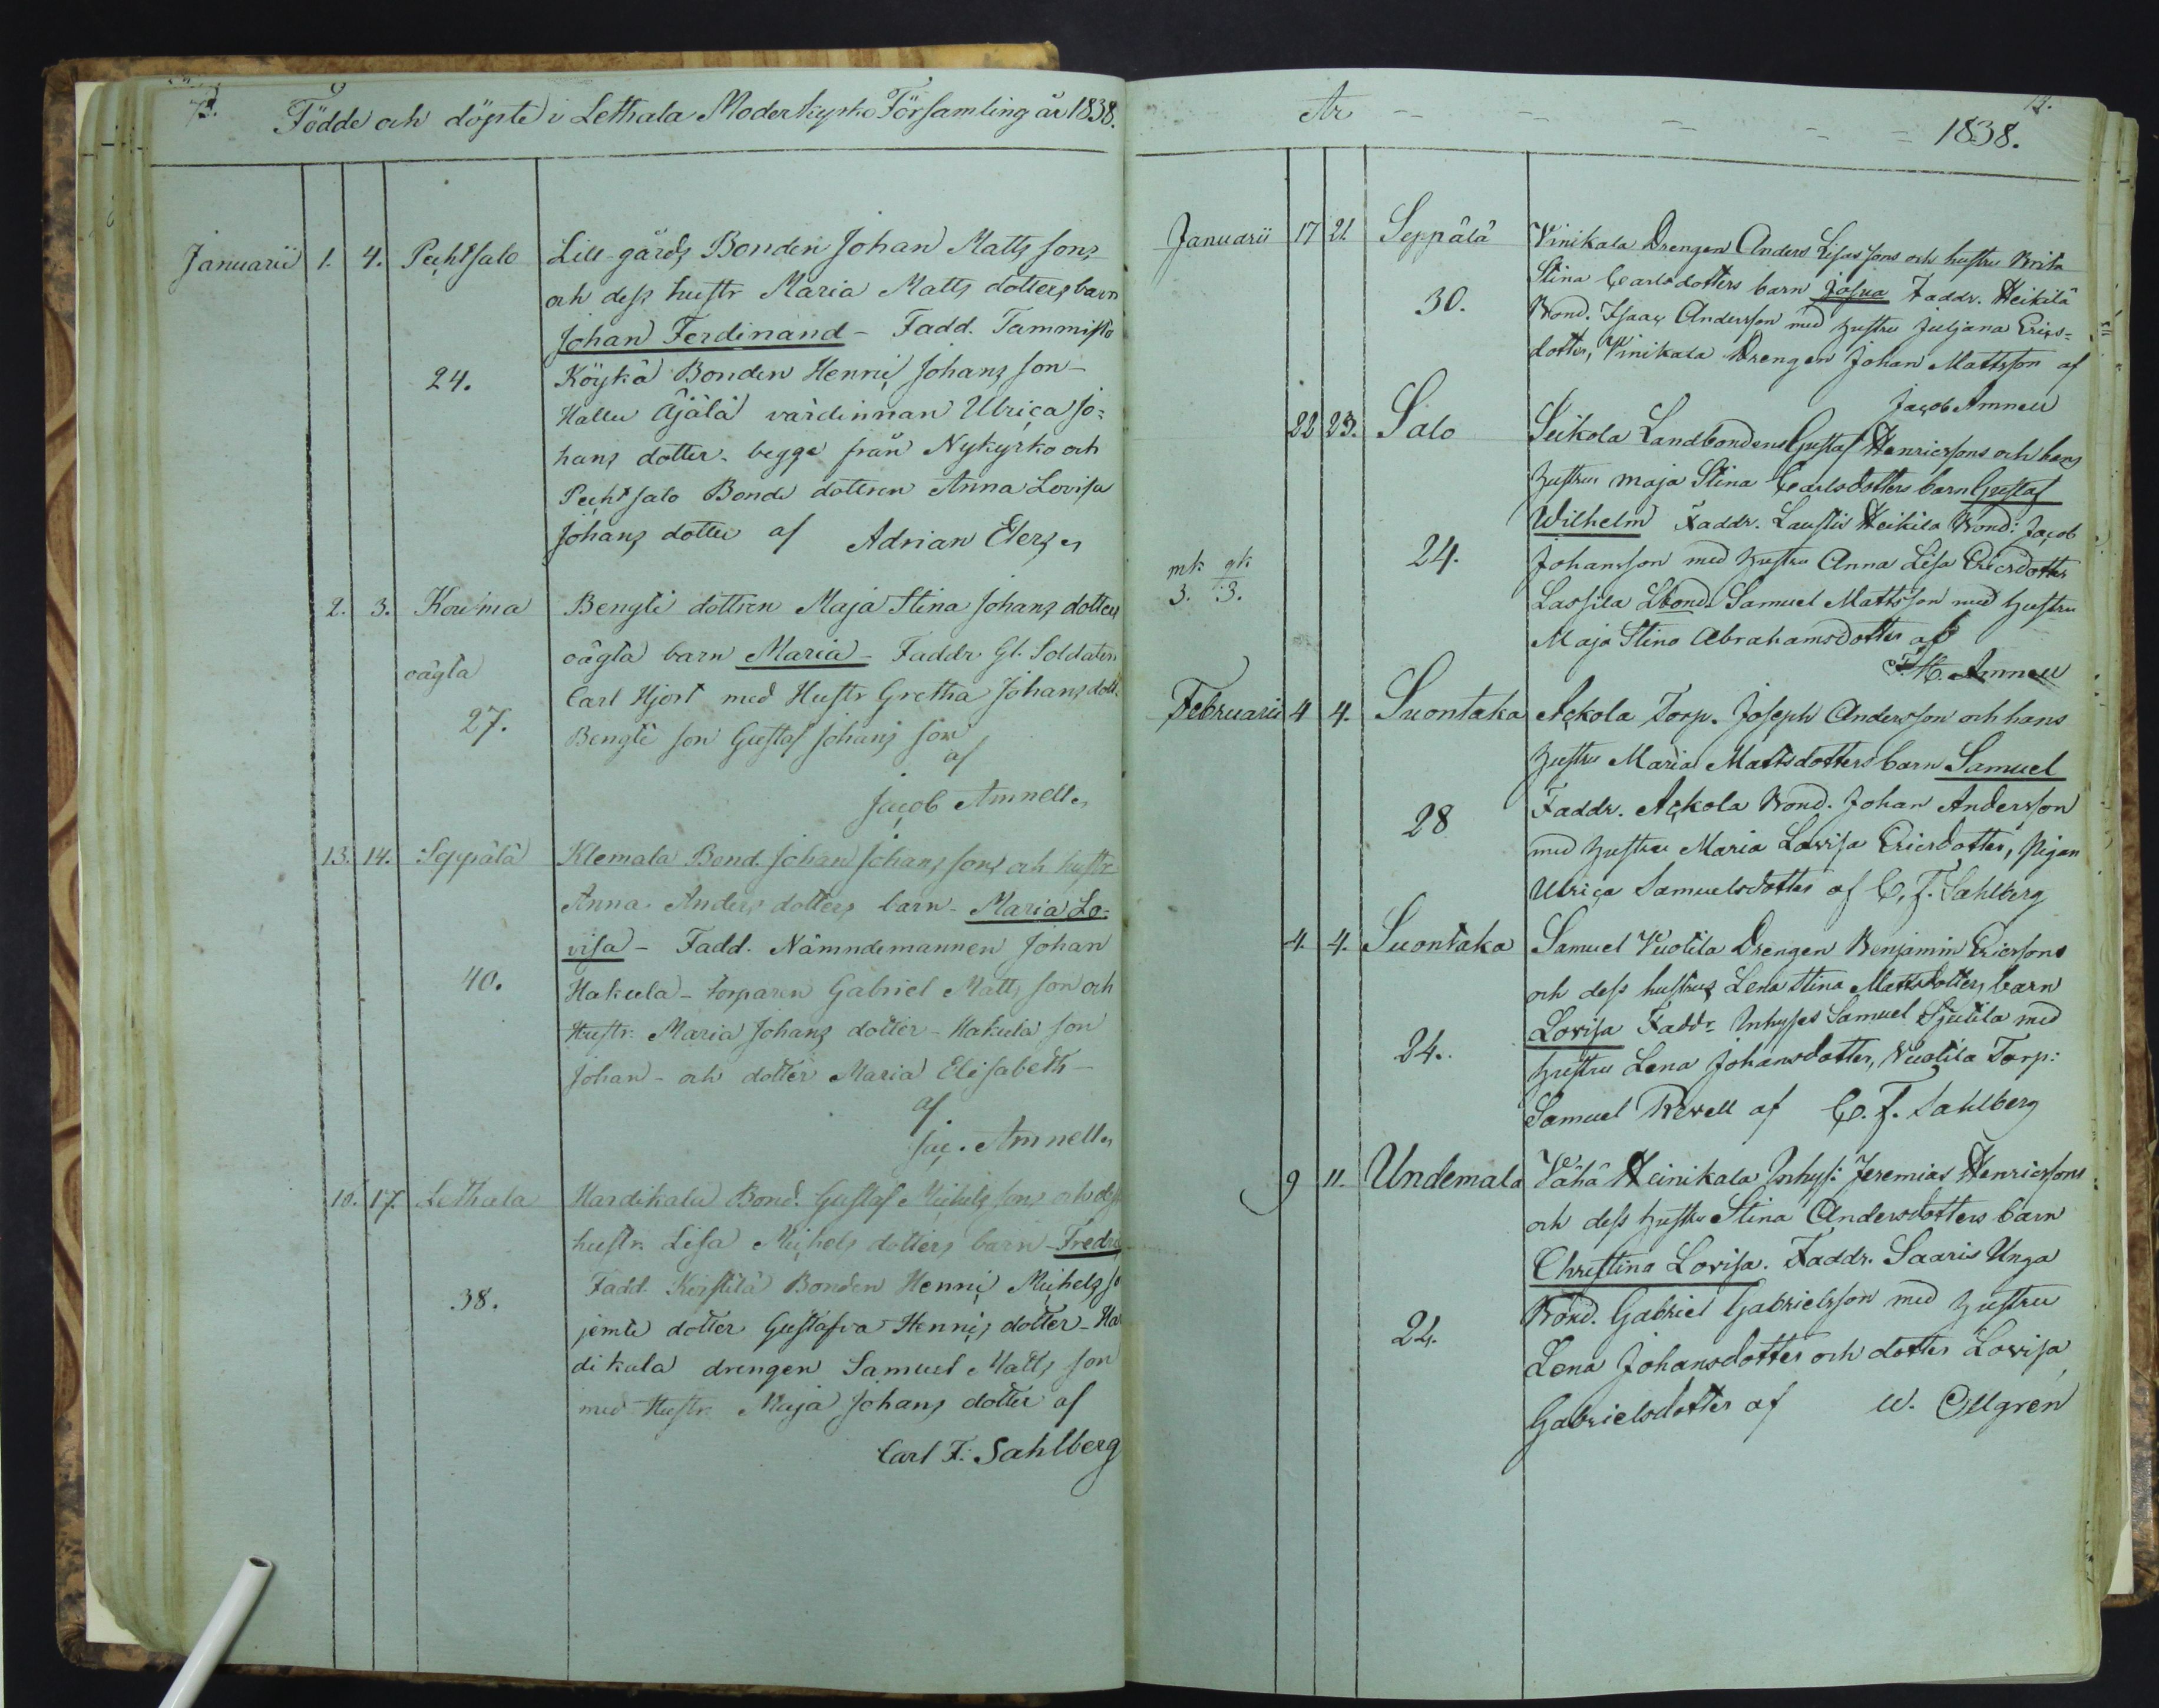 73.
Födde och döpte i Lethala Moderkyrko Församling år 1838.
Januarii 1. 4. Pechtsalo Lill-gårds Bonden Johan Matts sons
och dess hustr Maria Matts dotters barn
Johan Ferdinand - Fadd. Tammisto
24. Köykä Bonden Henric Johans son -
Hallu Äjälä värdinnan Ulrica Jo=
hans dotter - begge från Nykyrko och
Pechtsalo Bonde dottren Anna Lovisa
Johans dotter af Adrian Elers
2. 3. Kouma Bengti dottren Maja Stina Johans dotters
oägta oägta barn Maria - Faddr Gl. Soldaten
Carl Hjort med Hustr Gretha Johans dott.
27. Bengti son Gustaf Johans son
af
Jacob Amnell
13. 14. Seppälä Klemala Bond. Johan Johans sons och hustr
Anna Anders dotters barn - Maria Lo=
visa - Fadd. Nämndemannen Johan
40. Hakula - torparen Gabriel Matts son och
Hustr: Maria Johans dotter - Hakula son
Johan - och dotter Maria Elisabeth -
af
Jac. Amnell
10. 17. Lethala Hardikala Bond. Gustaf Michels sons och dess
hustr. Lisa Michels dotters barn - Fredric
38. Fadd. Kerstilä Bonden Henric Michels so
jemte dotter Gustafva Henrics dotter - Har
dikala drengen Samuel Matts son
med Hustr. Maja Johans dotter af
Carl F. Sahlberg
År - - - - - 1838.
Januarii 17 21. Seppälä Vinikala Drengen Anders sons och hustru Brita
Stina Carlsdotters barn Josua Faddr. Heikilä
30. Bond. Isaac Andersson med hustru Juljana Erics=
dotter, Vinikala Drengen Johan Mattsson af
Jacob Amnell
22 23. Salo Seikola Landbondens Gustaf Henricssons och hans
hustrus Maja Stina Carlsdotters barn Gustaf
Wilhelm Faddr. Lausti Heikila Bond: Jacob
mk gk
3. 3.
24. Johansson med hustru Anna Lisa Ericsdotter
Lassila Lbond. Samuel Mattsson med hustru
Maja Stina Abrahamsdotter af
Amnell
Februarii 4 4. Suontaka Ackola Torp. Joseph Andersson och hans
hustru Maria Mattsdotters barn Samuel
28 Faddr. Ackola Bond. Johan Andersson
med hustru Maria Lovisa Ericsdotter, Pigan
Ulrica Samuelsdotter af C. F. Sahlberg
4. 4. Suontaka Samuel Vuotila Drengen Benjamin Ericssons
och dess hustrus Lena Stina Mattsdotters barn
Lovisa Faddr Inhyses Samuel Sjutila med
24. hustru Lena Johansdotter, Vuotila Torp:
Samuel af C. F. Sahlberg
9 11. Undemala Vähä Heinikala Inhys: Jeremias Henricssons
och dess hustru Stina Andersdotters barn
Christina Lovisa. Faddr. Saaris Unga
24. Bond. Gabriel Gabrielsson med hustru
Lena Johansdotter och dotter Lovisa
Gabrielsdotter af W. Ollgren